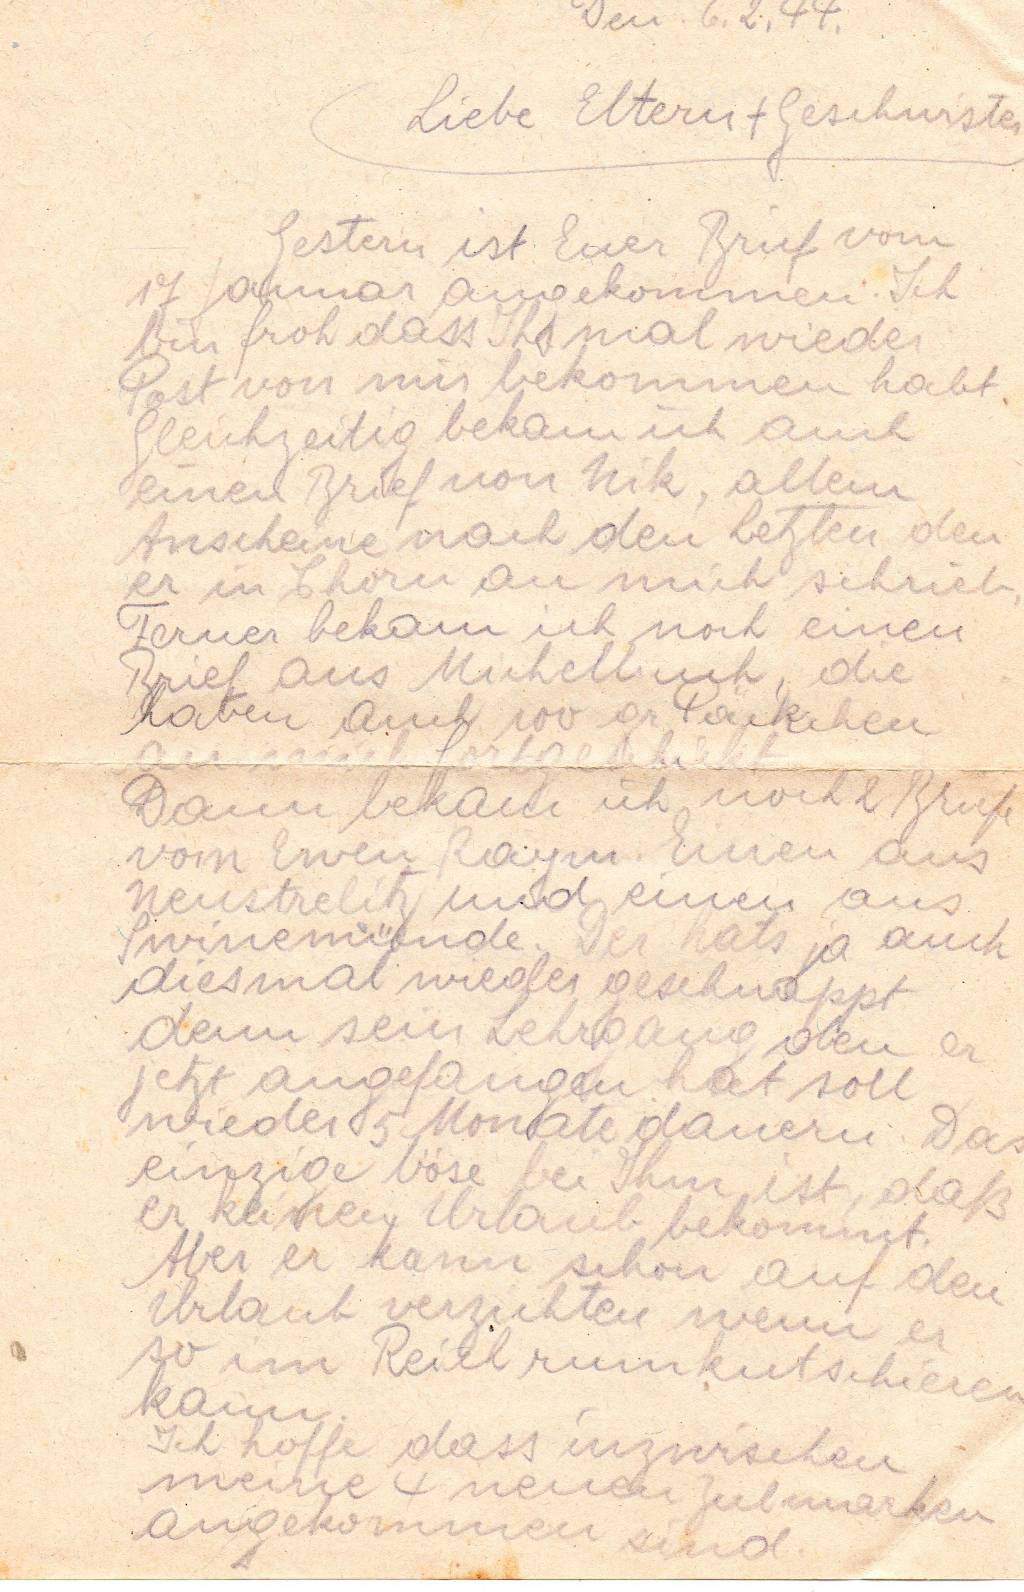 Den 6.2.44.
Liebe Eltern + Geschwister
Gestern ist Euer Brief vom
17 Januar angekommen. Ich
bin froh dass Ihr mal wieder
Post von mir bekommen habt.
Gleichzeitig bekam ich auch
einen Brief von Nik, allem
Anscheine nach den letzten den
er in Thorn an mich schrieb,
Ferner bekam ich noch einen
Brief aus Michelbuch, die
haben auch 100 gr Päckchen
an mich fortgeschickt
Dann bekam ich noch 2 Briefe
vom Raym. Einen aus
Neustrelitz und einen aus
Swinemünde. Der hats ja auch
diesmal wieder geschnappt
denn sein Lehrgang den er
jetzt angefangen hat soll
wieder 5 Monate dauern. Das
einzige böse bei Ihm ist, daß
er keinen Urlaub bekommt.
Aber er kann schon auf den
Urlaub verzichten wenn er
so im Reich rumkutschieren
kann.
Ich hoffe dass inzwischen
meine 4 neuen Zulmarken
angekommen sind.